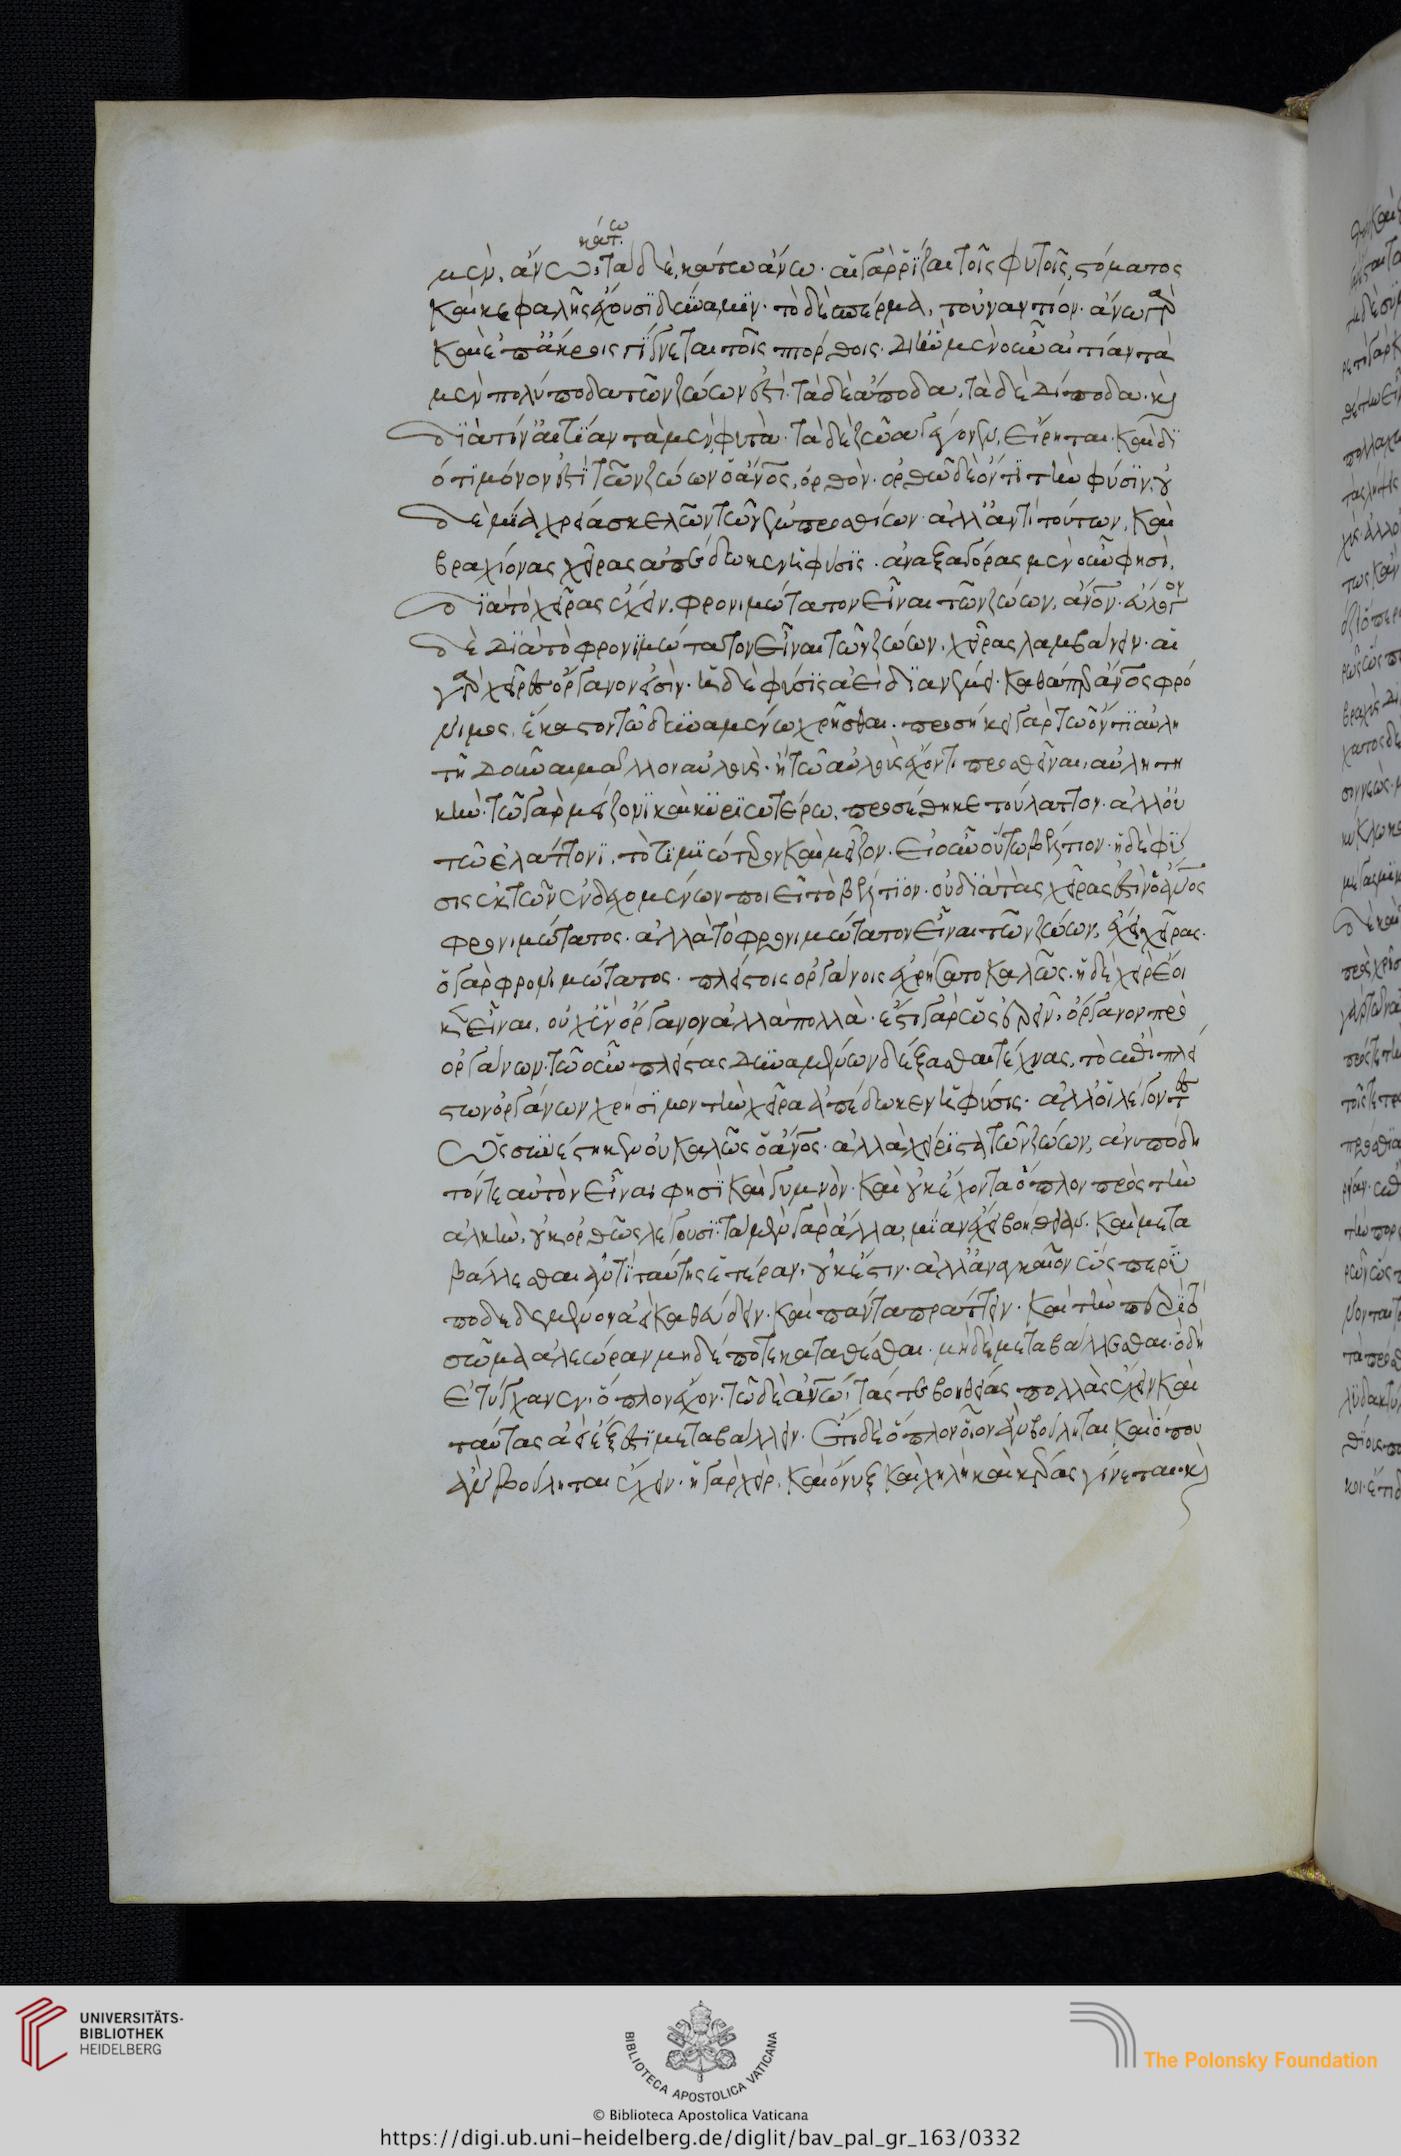 κάτω
μὲν, ἄνω, τὰ δὲ, κάτω ἄνω. αἱ γὰρ ῥίζαι τοῖς φυτοῖς, στόματος
καὶ κεφαλῆς ἔχουσι δύναμιν. τὸ δὲ σπέρμα, τοὐναντίον. ἄνω γὰρ
καὶ ἐπ' ἄκροις γίνεται τοῖς πτόρθοις. δι' ἣν μὲν οὖν αἰτίαν τὰ
μὲν πολύποδα τῶν ζώων ἐστὶ. τὰ δὲ ἄποδα. τὰ δὲ δίποδα. καὶ
διὰ τίν' αἰτίαν τὰ μὲν, φυτὰ. τὰ δὲ ζῶα γέγονεν, εἴρηται. καὶ δϊ
ότι μόνον ἐστὶ τῶν ζώων ὁ ἄνος, ὀρθὸν. ὀρθῶ δὲ ὄντι τὴν φύσιν, οὐ
δὲ μία χρεία σκελῶν τῶν ἐμπροσθίων. ἀλλ' ἀντὶ τούτων, καὶ
βραχίονας χεῖρας ἀποδέδωκεν ἡ φύσις. ἀναξαγόρας μὲν οὖν φησὶ,
διὰ τὸ χεῖρας ἔχειν, φρονιμώτατον εἶναι τῶν ζώων, ἄνον. εὔλογον
δὲ διὰ τὸ φρονιμώτατον εἶναι τῶν ζώων, χεῖρας λαμβάνειν. αἱ
γὰρ χεῖρες ὄργανον εἰσὶν. ἡ δὲ φύσις ἀεὶ διανέμει. καθάπερ ἄνος φρό
νιμος, ἕκαστον τῶ δυναμένω χρῆσθαι. προσήκει γὰρ τῶ ὄντι αὐλη
τῆ δοῦναι μᾶλλον αὐλοὺς. ἢ τῶ αὐλοὺς ἔχοντι προσθεῖναι, αὐλητι
κὴν. τῶ γὰρ μείζονι καὶ κυριωτέρω, προσέθηκε τούλαττον. ἀλλ' οὐ
τῶ ἐλάττονι, τὸ τιμιώτερον καὶ μεῖζον. εἰ οὖν οὕτω βέλτιον. ἡ δὲ φύ
σις ἐκ τῶν ἐνδεχομένων ποιεῖ τὸ βέλτιον. οὐ διὰ τὰς χεῖρας ἐστὶν ὁ ἄνος
φρονιμώτατος. ἀλλὰ τὸ φρονιμώτατον εἶναι τῶν ζώων, ἔχει χεῖρας.
ὁ γὰρ φρονιμώτατος. πλείστοις ὀργάνοις ἐχρήσατο καλῶς. ἡ δὲ χεὶρ ἔοι
κεν εἶναι, οὐχ ἓν ὄργανον ἀλλὰ πολλὰ. ἔστι γὰρ ὡσπερεὶ, ὄργανον πρὸ
ὀργάνων. τῶ οὖν πλείστας δυναμένων δέξασθαι τέχνας, τὸ ἐπὶ πλεῖ
στων ὀργάνων χρήσιμον τὴν χεῖρα ἀπέδωκεν ἡ φύσις. ἀλλ' οἱ λέγοντες
ὡς συνέστηκεν οὐ καλῶς ὁ ἄνος. ἀλλὰ χείριστα τῶν ζώων, ἀνυπόδη
τόν τε αὐτὸν εἶναι φησὶ καὶ γυμνὸν. καὶ οὐκ ἔχοντα ὅπλον πρὸς τὴν
ἀλκὴν, οὐκ ὀρθῶς λέγουσι. τὰ μὲν γὰρ ἄλλα, μίαν ἔχει βοήθειαν. καὶ μετα
βάλλεσθαι ἀντὶ ταύτης ἑτέραν, οὐκ ἔστιν. ἀλλ' ἀναγκαῖον ὥσπερ ὑ
ποδεδεμένον ἀεὶ καθεύδειν. καὶ πάντα πράττειν. καὶ τὴν περὶ τὸ
σῶμα ἀλεώραν μηδέποτε καταθέσθαι. μὴ δὲ μεταβάλλεσθαι. ὃ δὴ
ἐτύγχανεν, ὅπλον ἔχον. τῶ δὲ ἀνω, τάς τε βοηθείας πολλὰς ἔχειν καὶ
ταύτας ἀεὶ ἔξεστι μεταβάλλειν. ἔτι δὲ ὅπλον οἷον ἂν βούληται καὶ ὅπου
ἂν βούληται ἔχειν. ἡ γὰρ χεὶρ, καὶ ὄνυξ καὶ χηλὴ καὶ κέρας γίνεται. καὶ
UNIVERSITÄTS-
BIBLIOTHEK
HEIDELBERG
BIBLIOTECA APOSTOLICA VATICANA
© Biblioteca Apostolica Vaticana
The Polonsky Foundation
https://digi.ub.uni-heidelberg.de/diglit/bav_pal_gr_163/0332